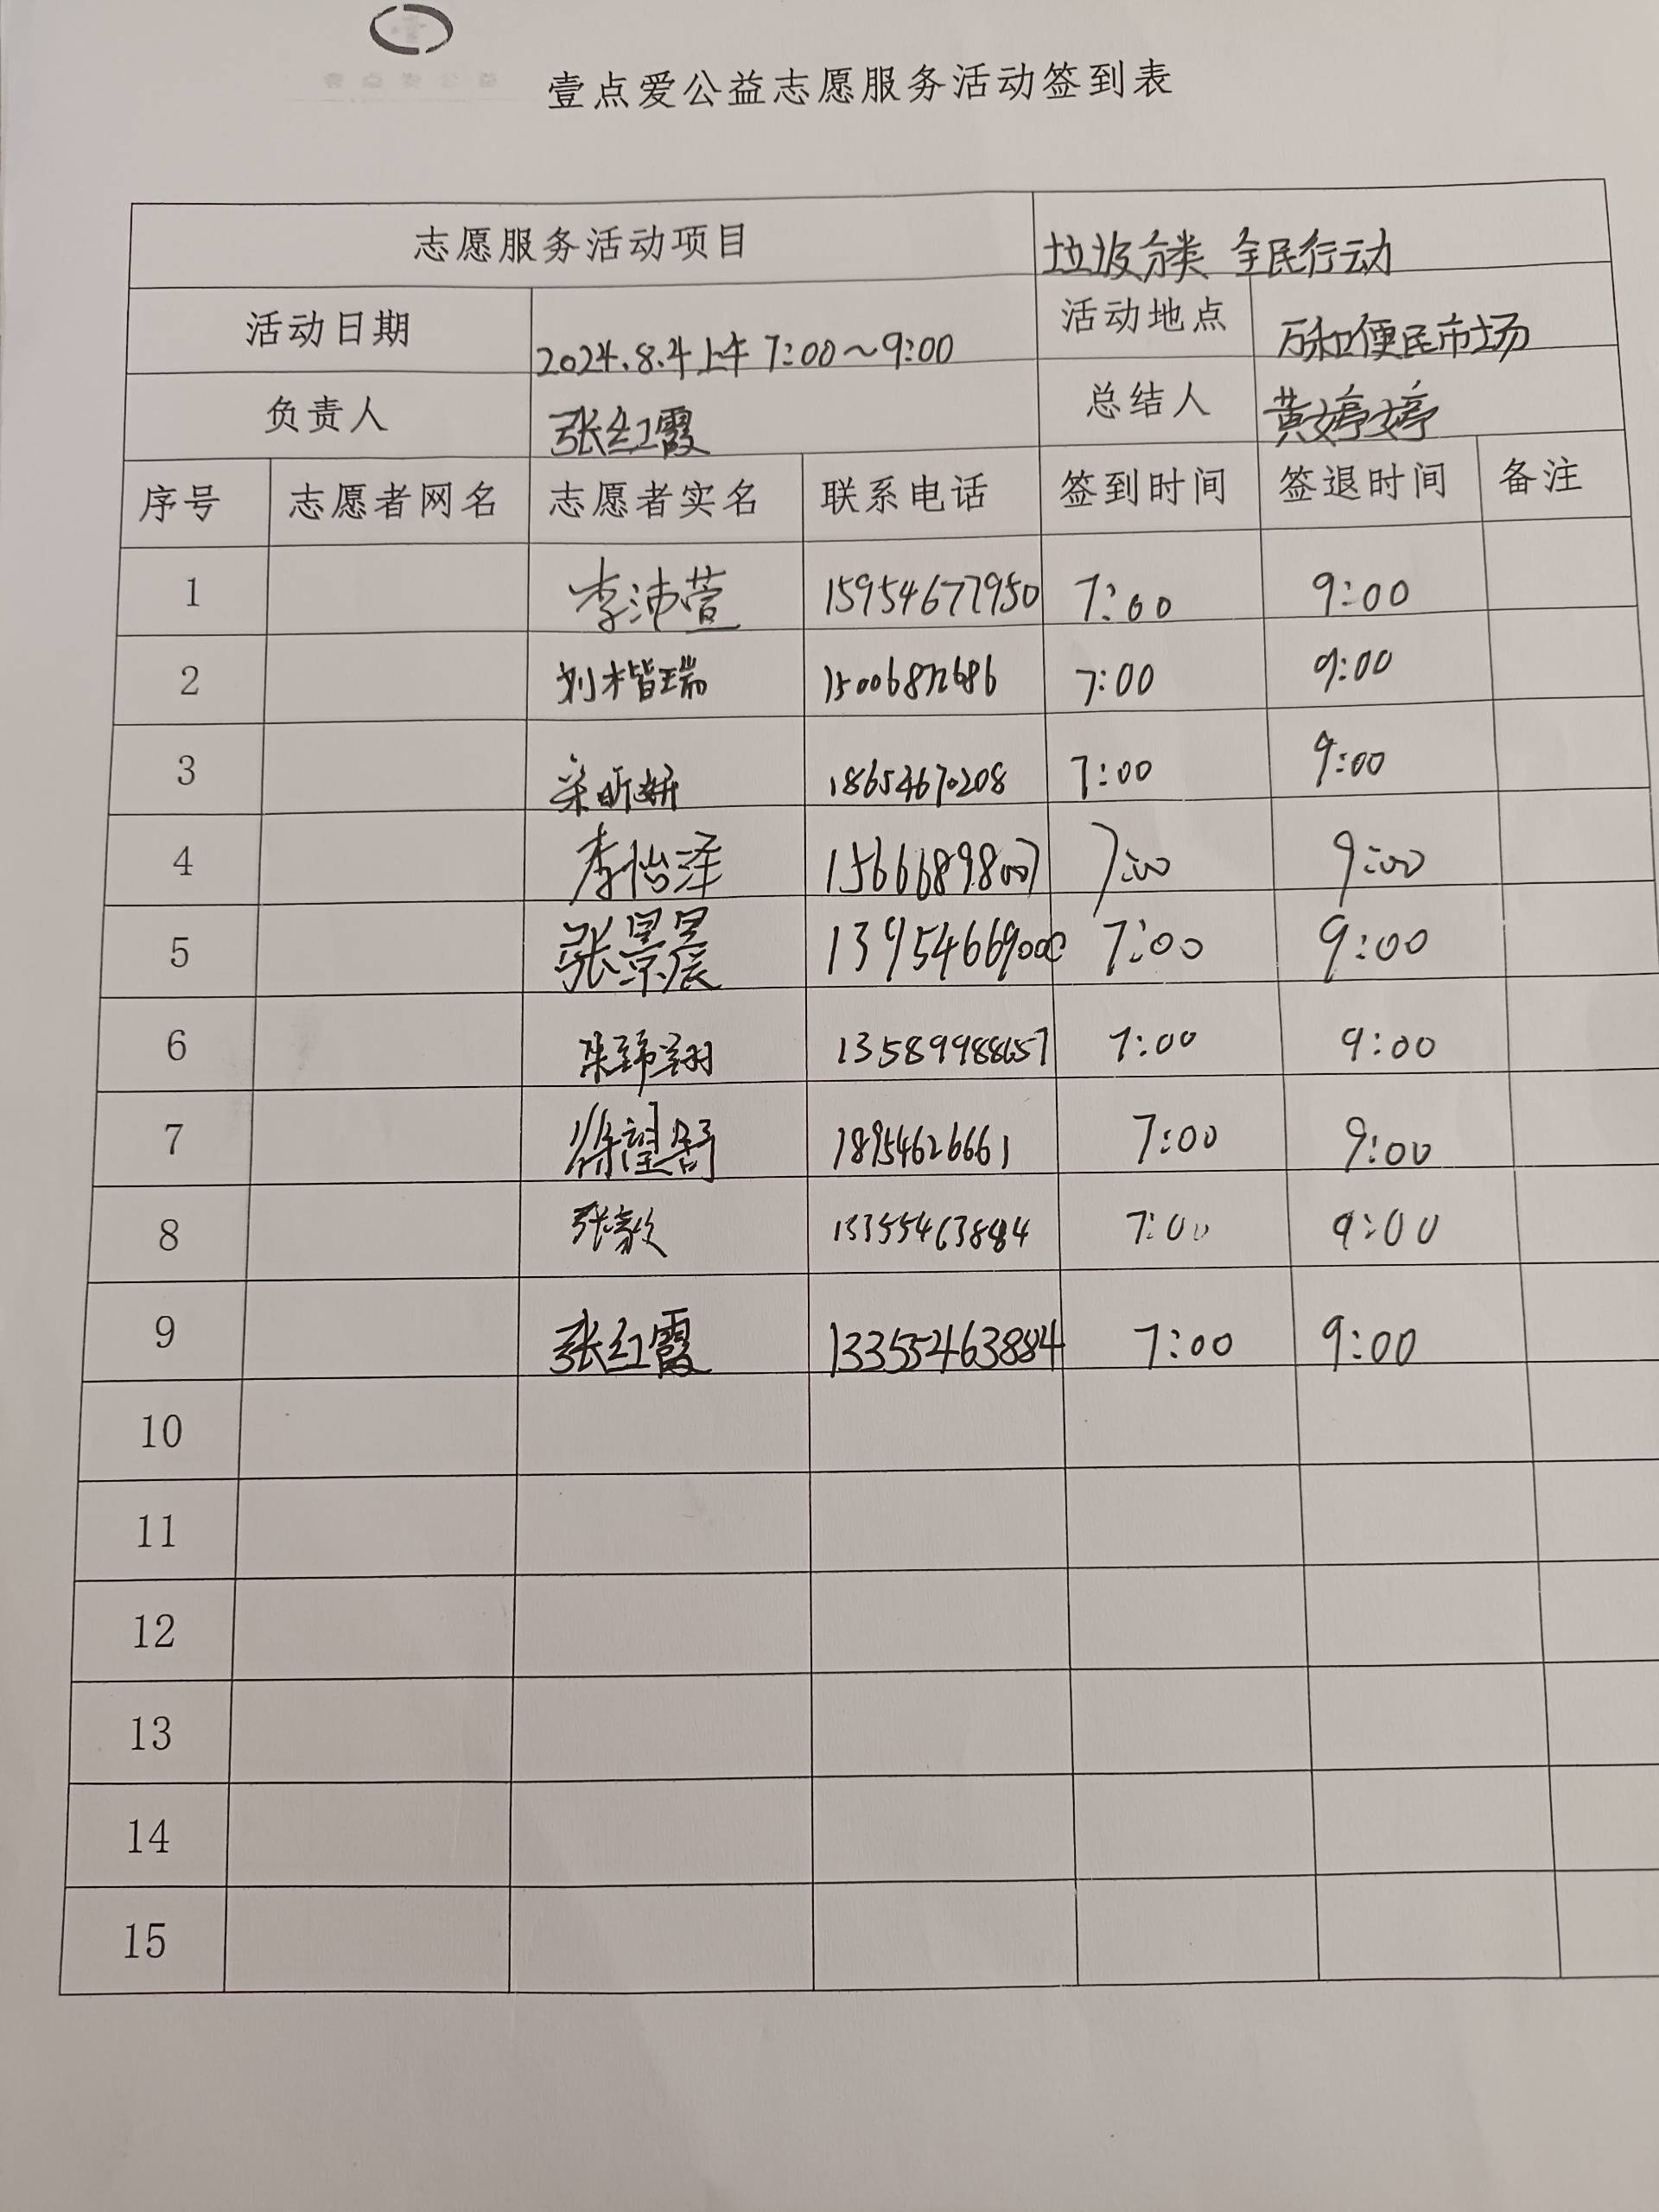 壹点爱公益志愿服务活动签到表
志愿服务活动项目 垃圾分类 全民行动
活动日期 2024.8.4上午 7:00~9:00 活动地点 万和便民市场
负责人 张红霞 总结人 黄婷婷
序号 志愿者网名 志愿者实名 联系电话 签到时间 签退时间 备注
1 李沛萱 15954677950 7:00 9:00
2 刘楷瑞 7:00 9:00
3 18654670208 7:00 9:00
4 李怡泽 15666898007 7:00 9:00
5 张景晨 13954669000 7:00 9:00
6 13589988657 7:00 9:00
7 徐望舒 18954626661 7:00 9:00
8 13355463884 7:00 9:00
9 张红霞 13355463884 7:00 9:00
10
11
12
13
14
15